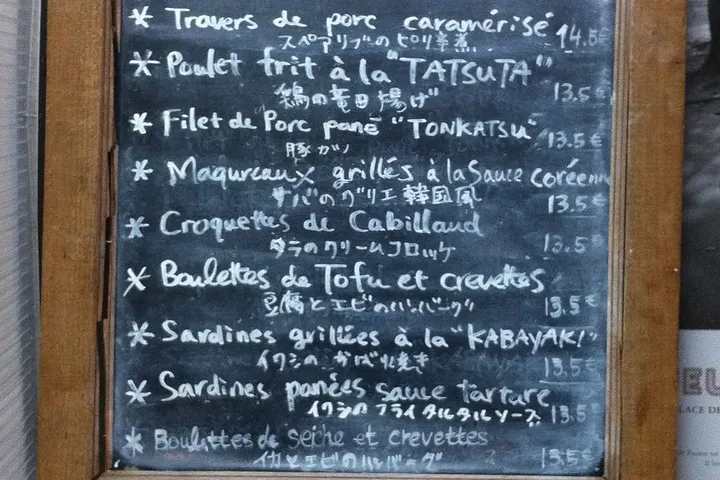 * Travers de porc caramérisé 14.5€
スペアリブのピリ辛煮
* Poulet frit à la "TATSUTA"
鶏の竜田揚げ 13.5€
* Filet de Porc pané "TONKATSU"
豚カツ 13.5€
* Maqureaux grillés à la Sauce coréenne
サバのグリエ韓国風 13.5€
* Croquettes de Cabillaud
タラのクリームコロッケ 13.5€
* Boulettes de Tofu et crevettes
豆腐とエビのハンバーグ 13.5€
* Sardines grillées à la "KABAYAKI"
イワシのかば焼き 13.5€
* Sardines panées sauce tartare
イワシのフライタルタルソース 13.5€
* Boulettes de seiche et crevettes
イカとエビのハンバーグ 13.5€
LACE DE